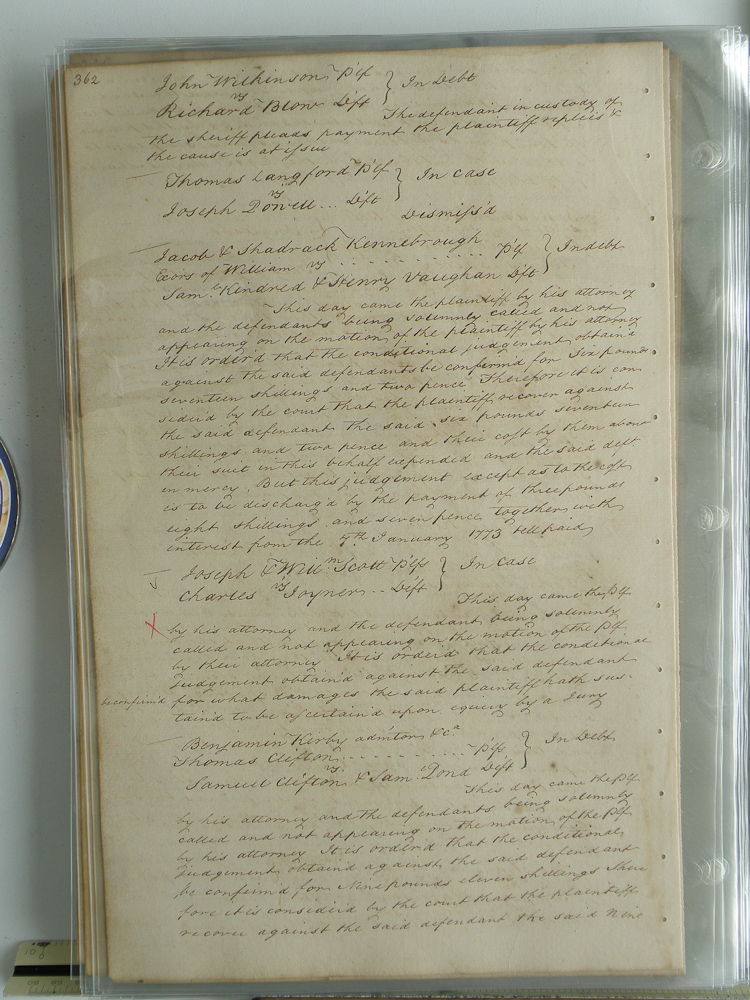 362
John Wilkinson Plf } In Debt
vs
Richard Blow Deft
The defendant in custody of
the sheriff pleads payment the plaintiff replies &
the cause is at issue
Thomas Langford Plf } In Case
vs
Joseph Powell ... Deft
Dismiss'd
Jacob & Shadrack Kennebrough
Exors of William . . . . . . . . Plf } In debt
vs
Saml Kindred & Henry Vaughan Deft
This day came the plaintiff by his attorney
and the defendants being solemnly called and not
appearing on the motion of the plaintiff by his attorney
It is order'd that the conditional judgement obtain'd
against the said defendants be confirm'd for Six pounds
seventeen shillings and two pence Therefore it is con
sider'd by the court that the plaintiff recover against
the said defendant the said six pounds seventeen
shillings and two pence and their cost by them about
their suit in this behalf expended and the said deft
in mercy. But this judgement except as to the cost
is to be discharg'd by the payment of three pounds
eight shillings and seven pence together with
interest from the 7th January 1773 till paid
Joseph & Willm Scott Plfs } In Case
vs
Charles Joyner ... Deft
This day came the Plf
by his attorney and the defendant being solemnly
called and not appearing on the motion of the Plf
by their attorney It is order'd that the conditional
Judgement obtain'd against the said defendant
be confirm'd for what damages the said plaintiff hath sus-
tain'd to be ascertain'd upon equiry by a Jury
Benjamin Kerby admtor &ca
Thomas Clifton . . . . . . . . Plfs } In Debt
vs
Samuel Clifton & Sam Pond Deft
This day came the Plf
by his attorney and the defendants being solemnly
called and not appearing on the motion of the Plf
by his attorney It is order'd that the conditional
Judgement obtain'd against the said defendant
be confirm'd for Nine pounds eleven shillings There
fore it is consider'd by the court that the plaintiff
recover against the said defendant the said Nine